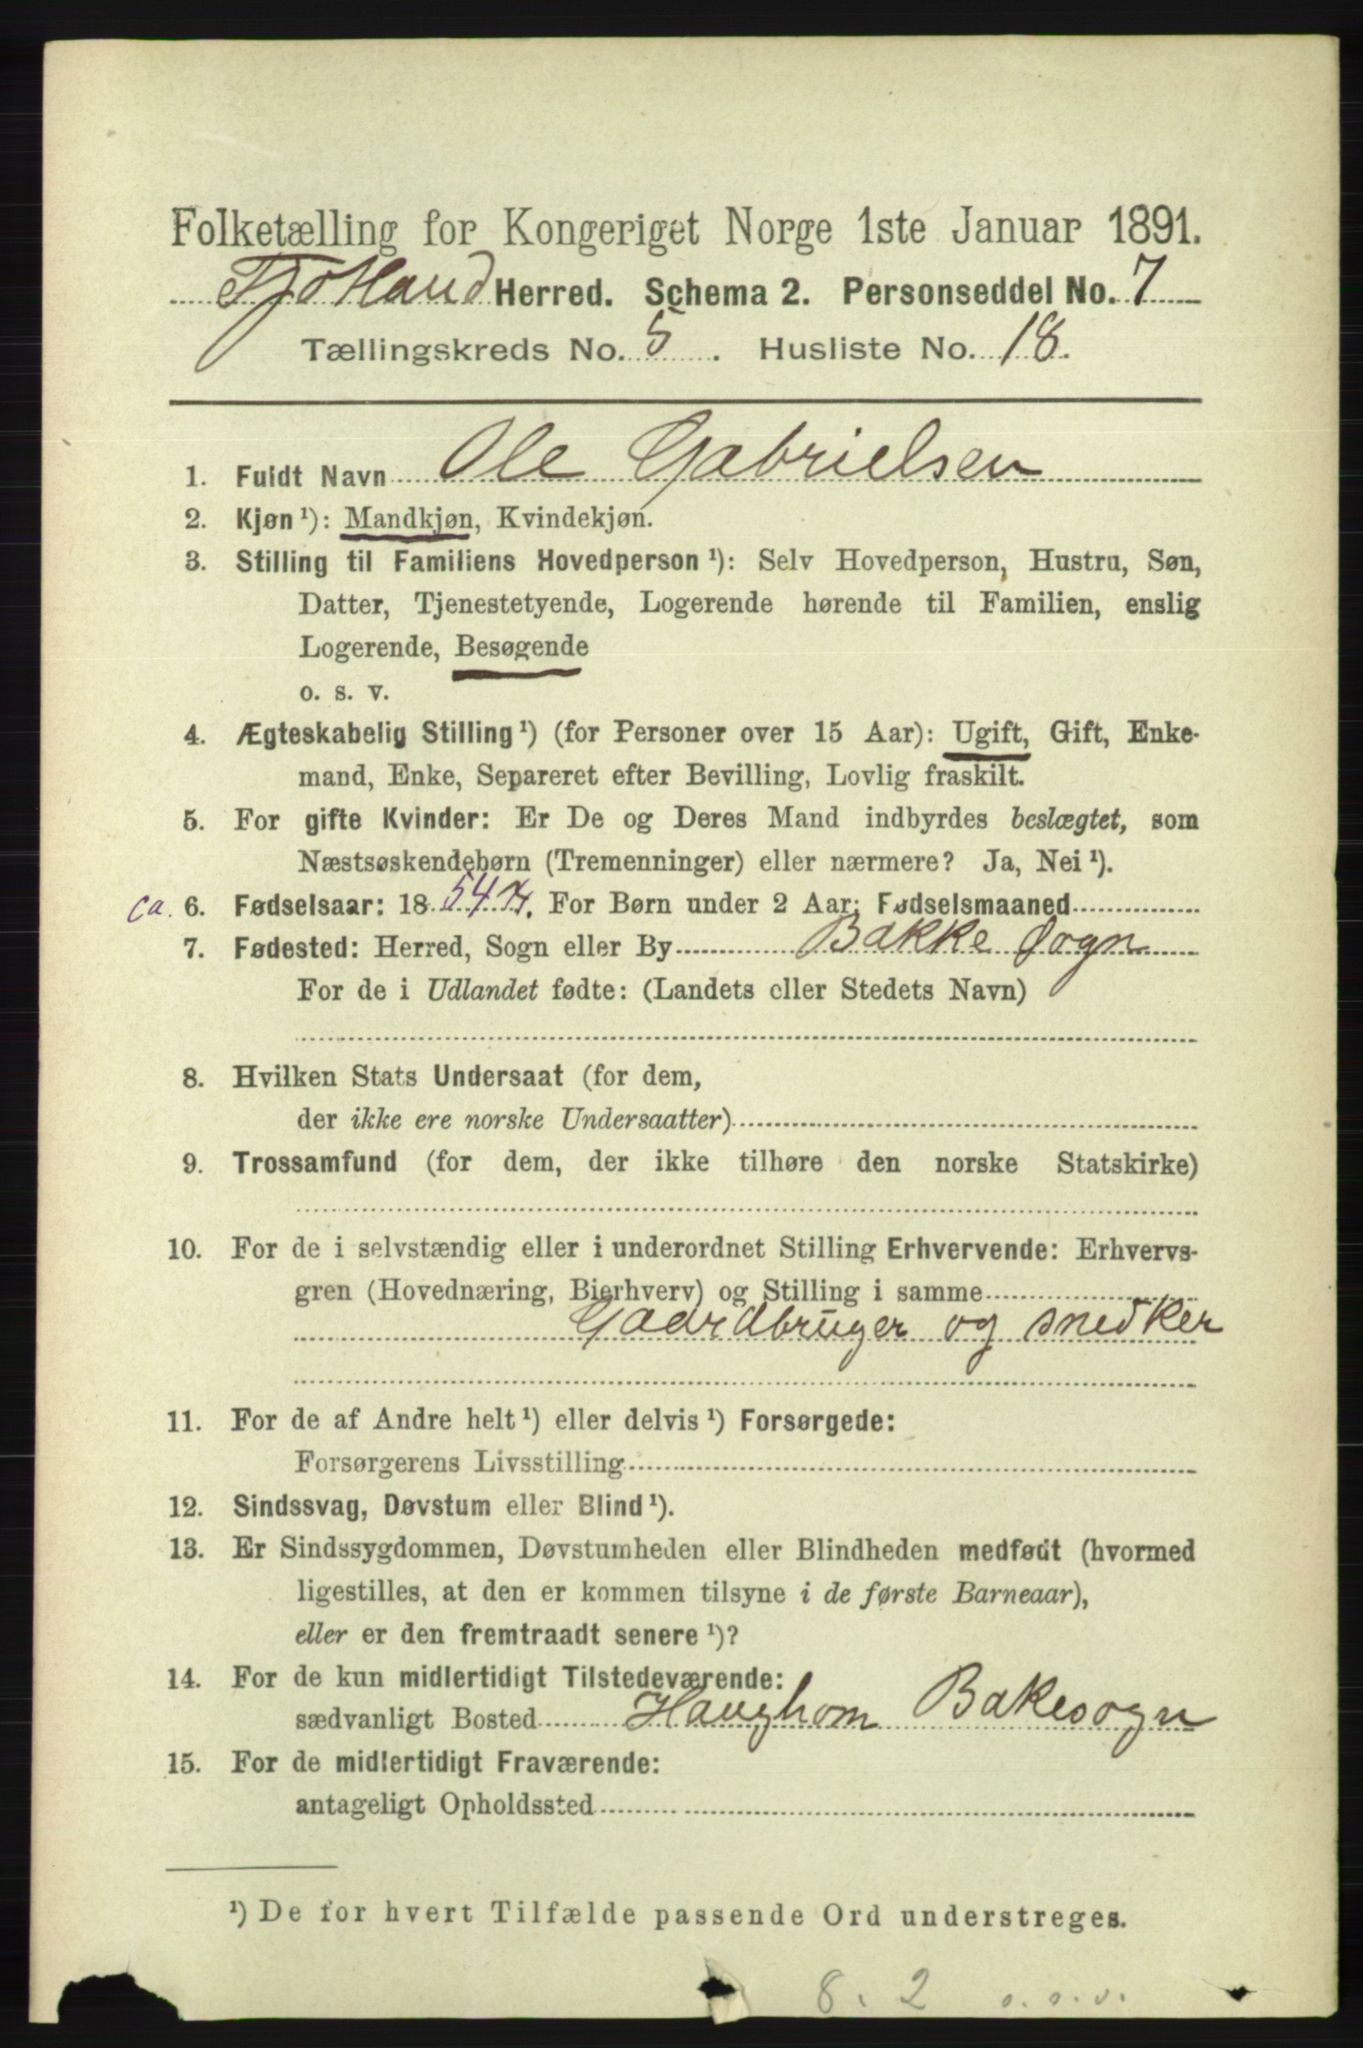 Folketælling for Kongeriget Norge 1ste Januar 1891.
Fjotland Herred. Schema 2. Personseddel No. 7
Tællingskreds No. 5. Husliste No. 18.
1. Fuldt Navn Ole Gabrielsen
2. Kjøn¹): Mandkjøn, Kvindekjøn.
3. Stilling til Familiens Hovedperson¹): Selv Hovedperson, Hustru, Søn,
Datter, Tjenestetyende, Logerende hørende til Familien, enslig
Logerende, Besøgende
o. s. v.
4. Ægteskabelig Stilling¹) (for Personer over 15 Aar): Ugift, Gift, Enke-
mand, Enke, Separeret efter Bevilling, Lovlig fraskilt.
5. For gifte Kvinder: Er De og Deres Mand indbyrdes beslægtet, som
Næstsøskendebørn (Tremenninger) eller nærmere? Ja, Nei¹).
ca. 6. Fødselsaar: 1854. For Børn under 2 Aar: Fødselsmaaned
7. Fødested: Herred, Sogn eller By Bakke Sogn
For de i Udlandet fødte: (Landets eller Stedets Navn)
8. Hvilken Stats Undersaat (for dem,
der ikke ere norske Undersaatter)
9. Trossamfund (for dem, der ikke tilhøre den norske Statskirke)
10. For de i selvstændig eller i underordnet Stilling Erhvervende: Erhvervs-
gren (Hovednæring, Bierhverv) og Stilling i samme
Gaardbruger og snedker
11. For de af Andre helt¹) eller delvis¹) Forsørgede:
Forsørgerens Livsstilling
12. Sindssvag, Døvstum eller Blind¹).
13. Er Sindssygdommen, Døvstumheden eller Blindheden medfødt (hvormed
ligestilles, at den er kommen tilsyne i de første Barneaar),
eller er den fremtraadt senere¹)?
14. For de kun midlertidigt Tilstedeværende:
sædvanligt Bosted Haughom Bakesogn
15. For de midlertidigt Fraværende:
antageligt Opholdssted
¹) De for hvert Tilfælde passende Ord understreges.
8. 2 o. s. v.